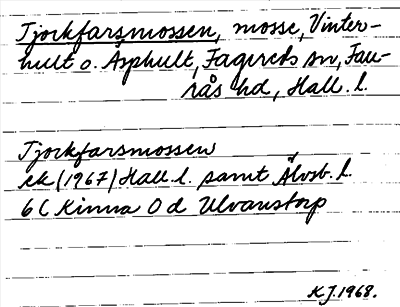 Tjockfarsmossen, mosse, Vinter-
hult o. Asphult, Fagereds sn, Fau-
rås hd, Hall. l.
Tjockfarsmossen
ek (1967) Hall. l. samt Älvsb. l.
6C Kinna 0 d Ulvanstorp
KJ. 1968.